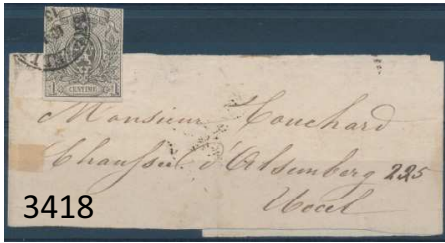 1 CENTIME 1
Monsieur Couchard
Chaussée d'Alsemberg 225
Uccel
3418